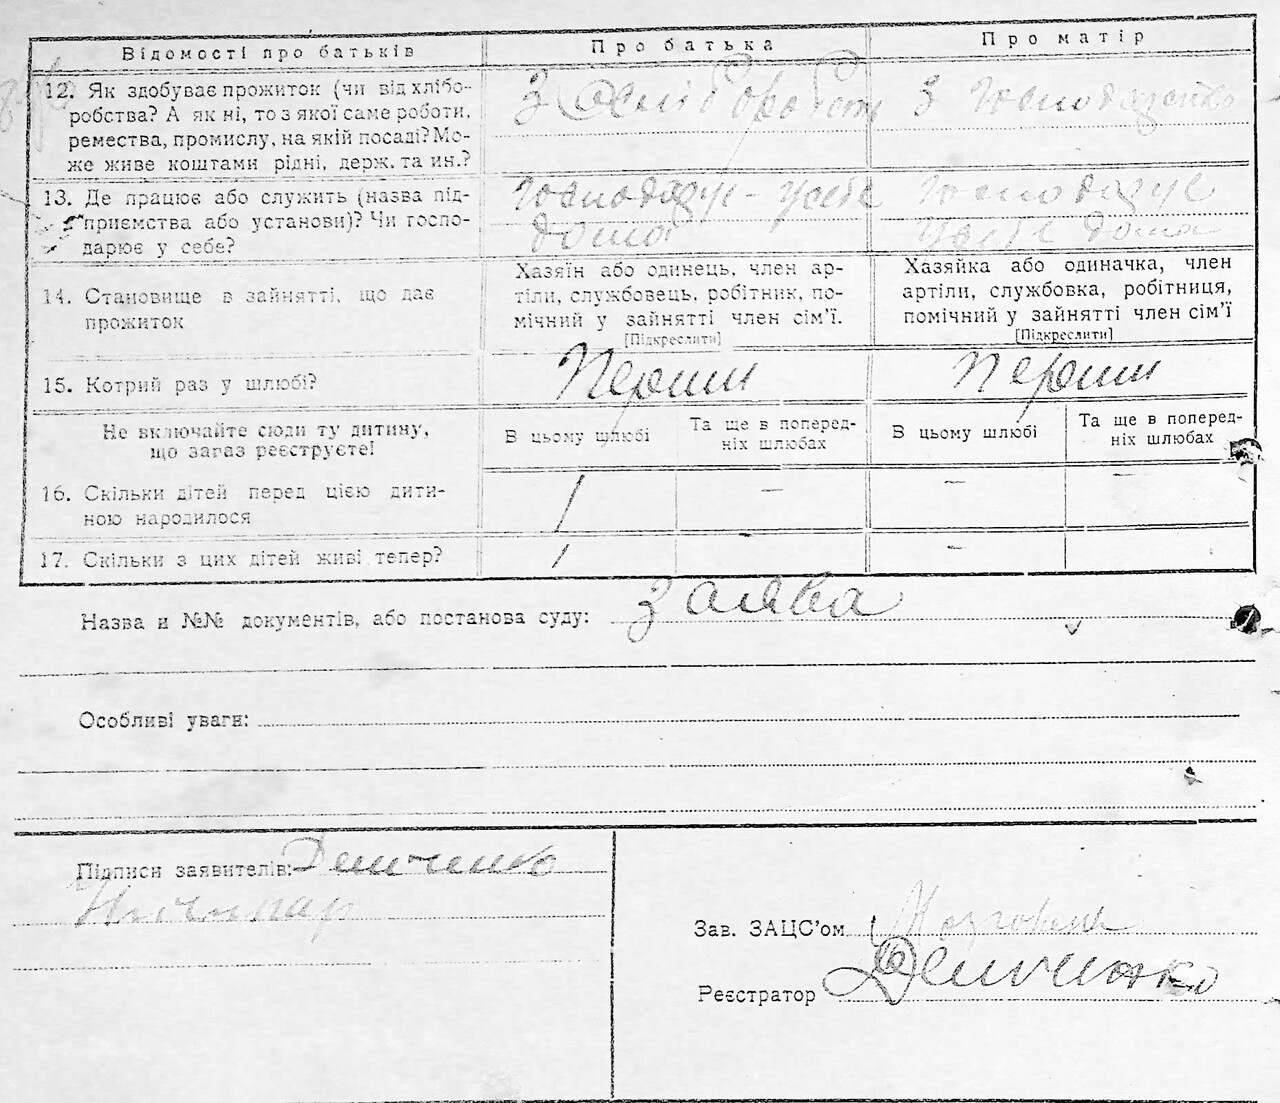 Відомості про батьків
Про батька
Про матір
12. Як здобуває прожиток (чи від хлібо-
робства? А як ні, то з якої саме роботи,
ремества, промислу, на якій посаді? Мо-
же живе коштами рідні, держ. та ин.?
З
З
13. Де працює або служить (назва під-
приємства або установи)? Чи госпо-
дарює у себе?
Господарує - усебе
дома
Господарує
Усебе дома
14. Становище в зайнятті, що дає
прожиток
Хазяїн або одинець, член ар-
тіли, службовець, робітник, по-
мічний у зайнятті член сім'ї.
[Підкреслити]
Хазяйка або одиначка, член
артіли, службовка, робітниця,
помічний у зайнятті член сім'ї
[Підкреслити]
15. Котрий раз у шлюбі?
Перши
Перши
Не включайте сюди ту дитину,
що зараз реєструєте!
В цьому шлюбі
Та ще в поперед-
ніх шлюбах
В цьому шлюбі
Та ще в поперед-
ніх шлюбах
16. Скільки дітей перед цією дити-
ною народилося
1 — — —
17. Скільки з цих дітей живі тепер?
1 - —
Назва и №№ документів, або постанова суду: заява
Особливі уваги:
Підписи заявителів: Демченко
Ничипар
Зав. ЗАЦС'ом
Реєстратор Демченко